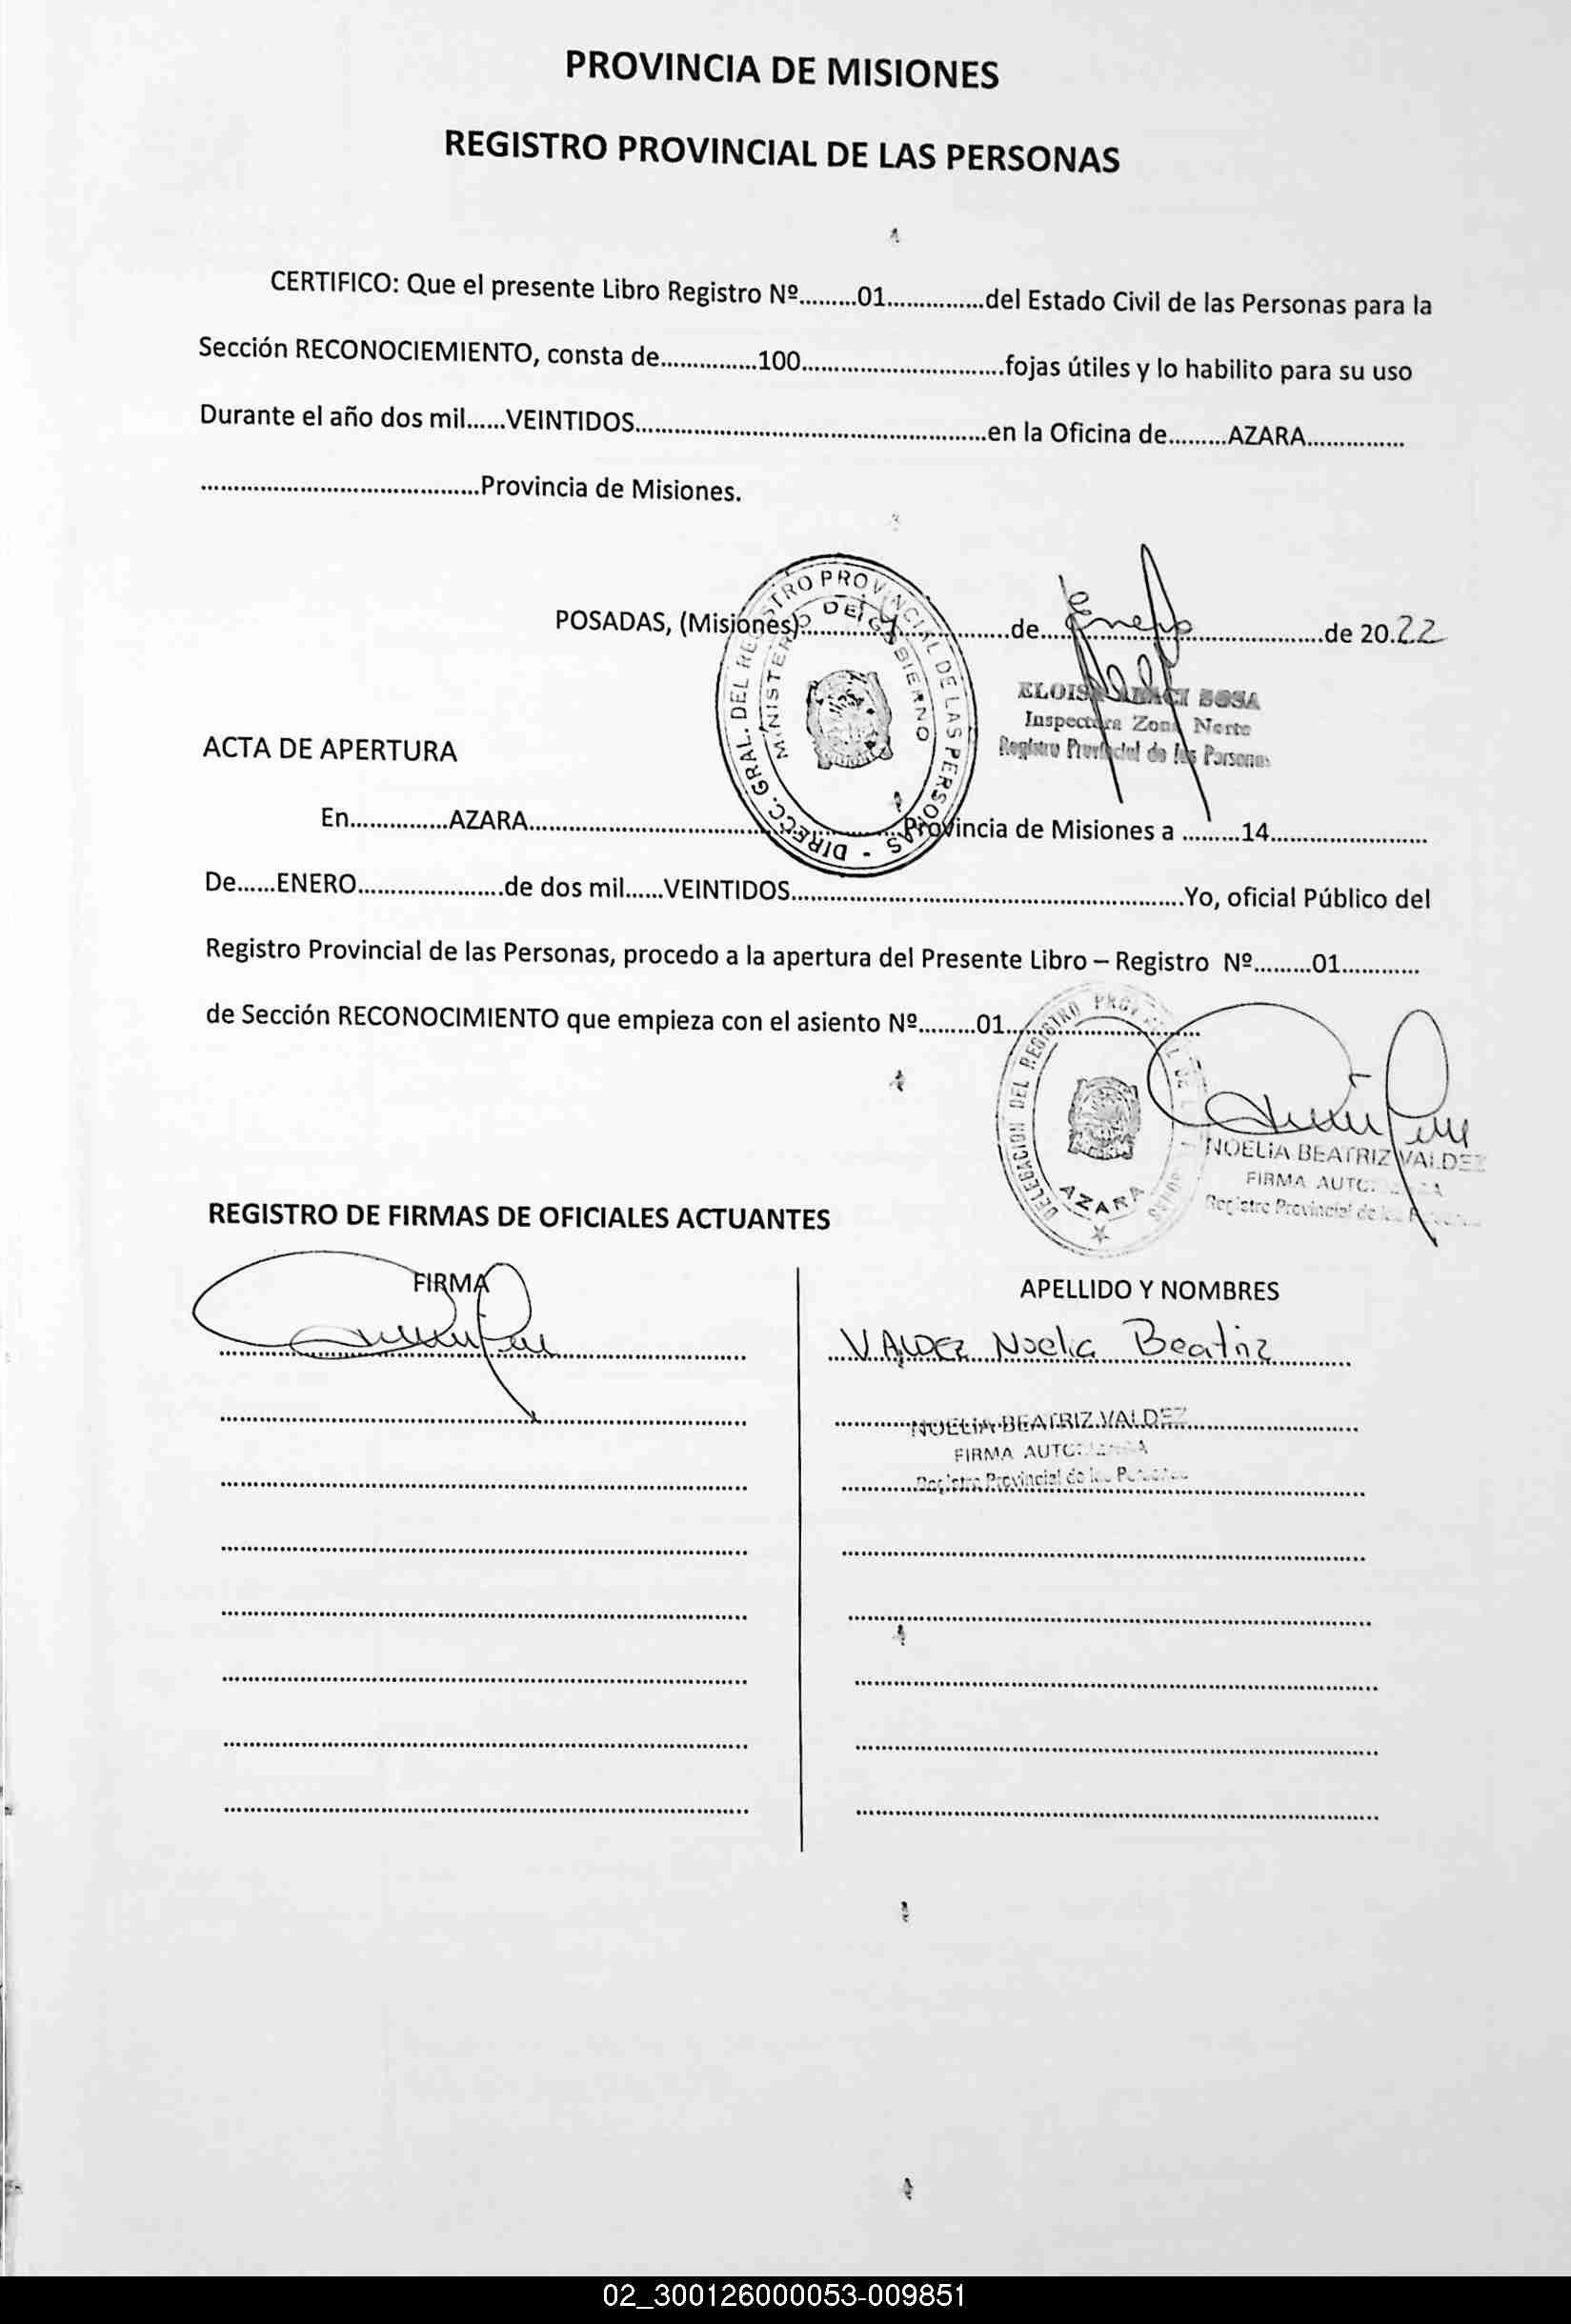 PROVINCIA DE MISIONES
REGISTRO PROVINCIAL DE LAS PERSONAS
CERTIFICO: Que el presente Libro Registro Nº.........01...............del Estado Civil de las Personas para la
Sección RECONOCIEMIENTO, consta de...............100................................fojas útiles y lo habilito para su uso
Durante el año dos mil......VEINTIDOS.......................................................en la Oficina de.........AZARA...............
............................................Provincia de Misiones.
DIRECC. GRAL. DEL REGISTRO PROVINCIAL DE LAS PERSONAS -
MINISTERIO DE GOBIERNO
POSADAS, (Misiones)................................de....Enero....................de 20.22
SOSA
Inspectora Zona Norte
Registro Provincial de las Personas
ACTA DE APERTURA
En...............AZARA..........................................................Provincia de Misiones a .........14.........................
De......ENERO.......................de dos mil......VEINTIDOS..............................................................Yo, oficial Público del
Registro Provincial de las Personas, procedo a la apertura del Presente Libro – Registro Nº.........01............
de Sección RECONOCIMIENTO que empieza con el asiento Nº.........01..............................
DELEGACION DEL REGISTRO
AZARA
NOELIA BEATRIZ VALDEZ
FIRMA
Registro Provincial de las
REGISTRO DE FIRMAS DE OFICIALES ACTUANTES
FIRMA
APELLIDO Y NOMBRES
VALDEZ Noelia Beatriz
NOELIA BEATRIZ VALDEZ
FIRMA
Registro Provincial de las
02_300126000053-009851